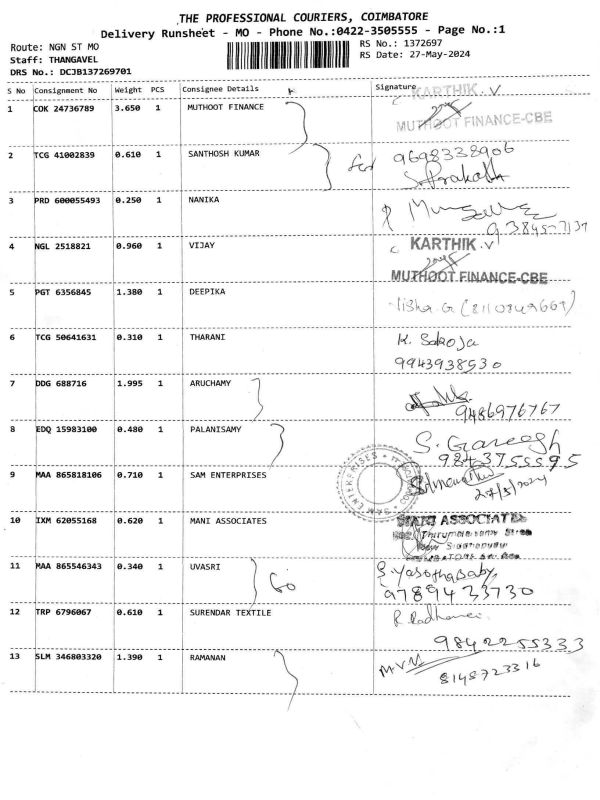 THE PROFESSIONAL COURIERS, COIMBATORE
Delivery Runsheet - MO - Phone No.:0422-3505555 - Page No.:1
Route: NGN ST MO
RS No.: 1372697
Staff: THANGAVEL
RS Date: 27-May-2024
DRS No.: DCJB137269701
S No Consignment No Weight PCS Consignee Details Signature
KARTHIK. V
1 COK 24736789 3.650 1 MUTHOOT FINANCE
MUTHOOT FINANCE-CBE
2 TCG 41002839 0.610 1 SANTHOSH KUMAR 9698338906
3 PRD 600055493 0.250 1 NANIKA
KARTHIK. V
4 NGL 2518821 0.960 1 VIJAY
MUTHOOT FINANCE-CBE
5 PGT 6356845 1.380 1 DEEPIKA
6 TCG 50641631 0.310 1 THARANI K. Saroja
9943938530
7 DDG 688716 1.995 1 ARUCHAMY
9486976767
8 EDQ 15983100 0.480 1 PALANISAMY S. Ganeesh
9843755595
9 MAA 865818106 0.710 1 SAM ENTERPRISES
27/5/2024
SAM ENTERPRISES
10 IXM 62055168 0.620 1 MANI ASSOCIATES MANI ASSOCIATES
11 MAA 865546343 0.340 1 UVASRI S. Yasothababy
9789433730
12 TRP 6796067 0.610 1 SURENDAR TEXTILE
9842255333
13 SLM 346803320 1.390 1 RAMANAN M.V.M
8148723316